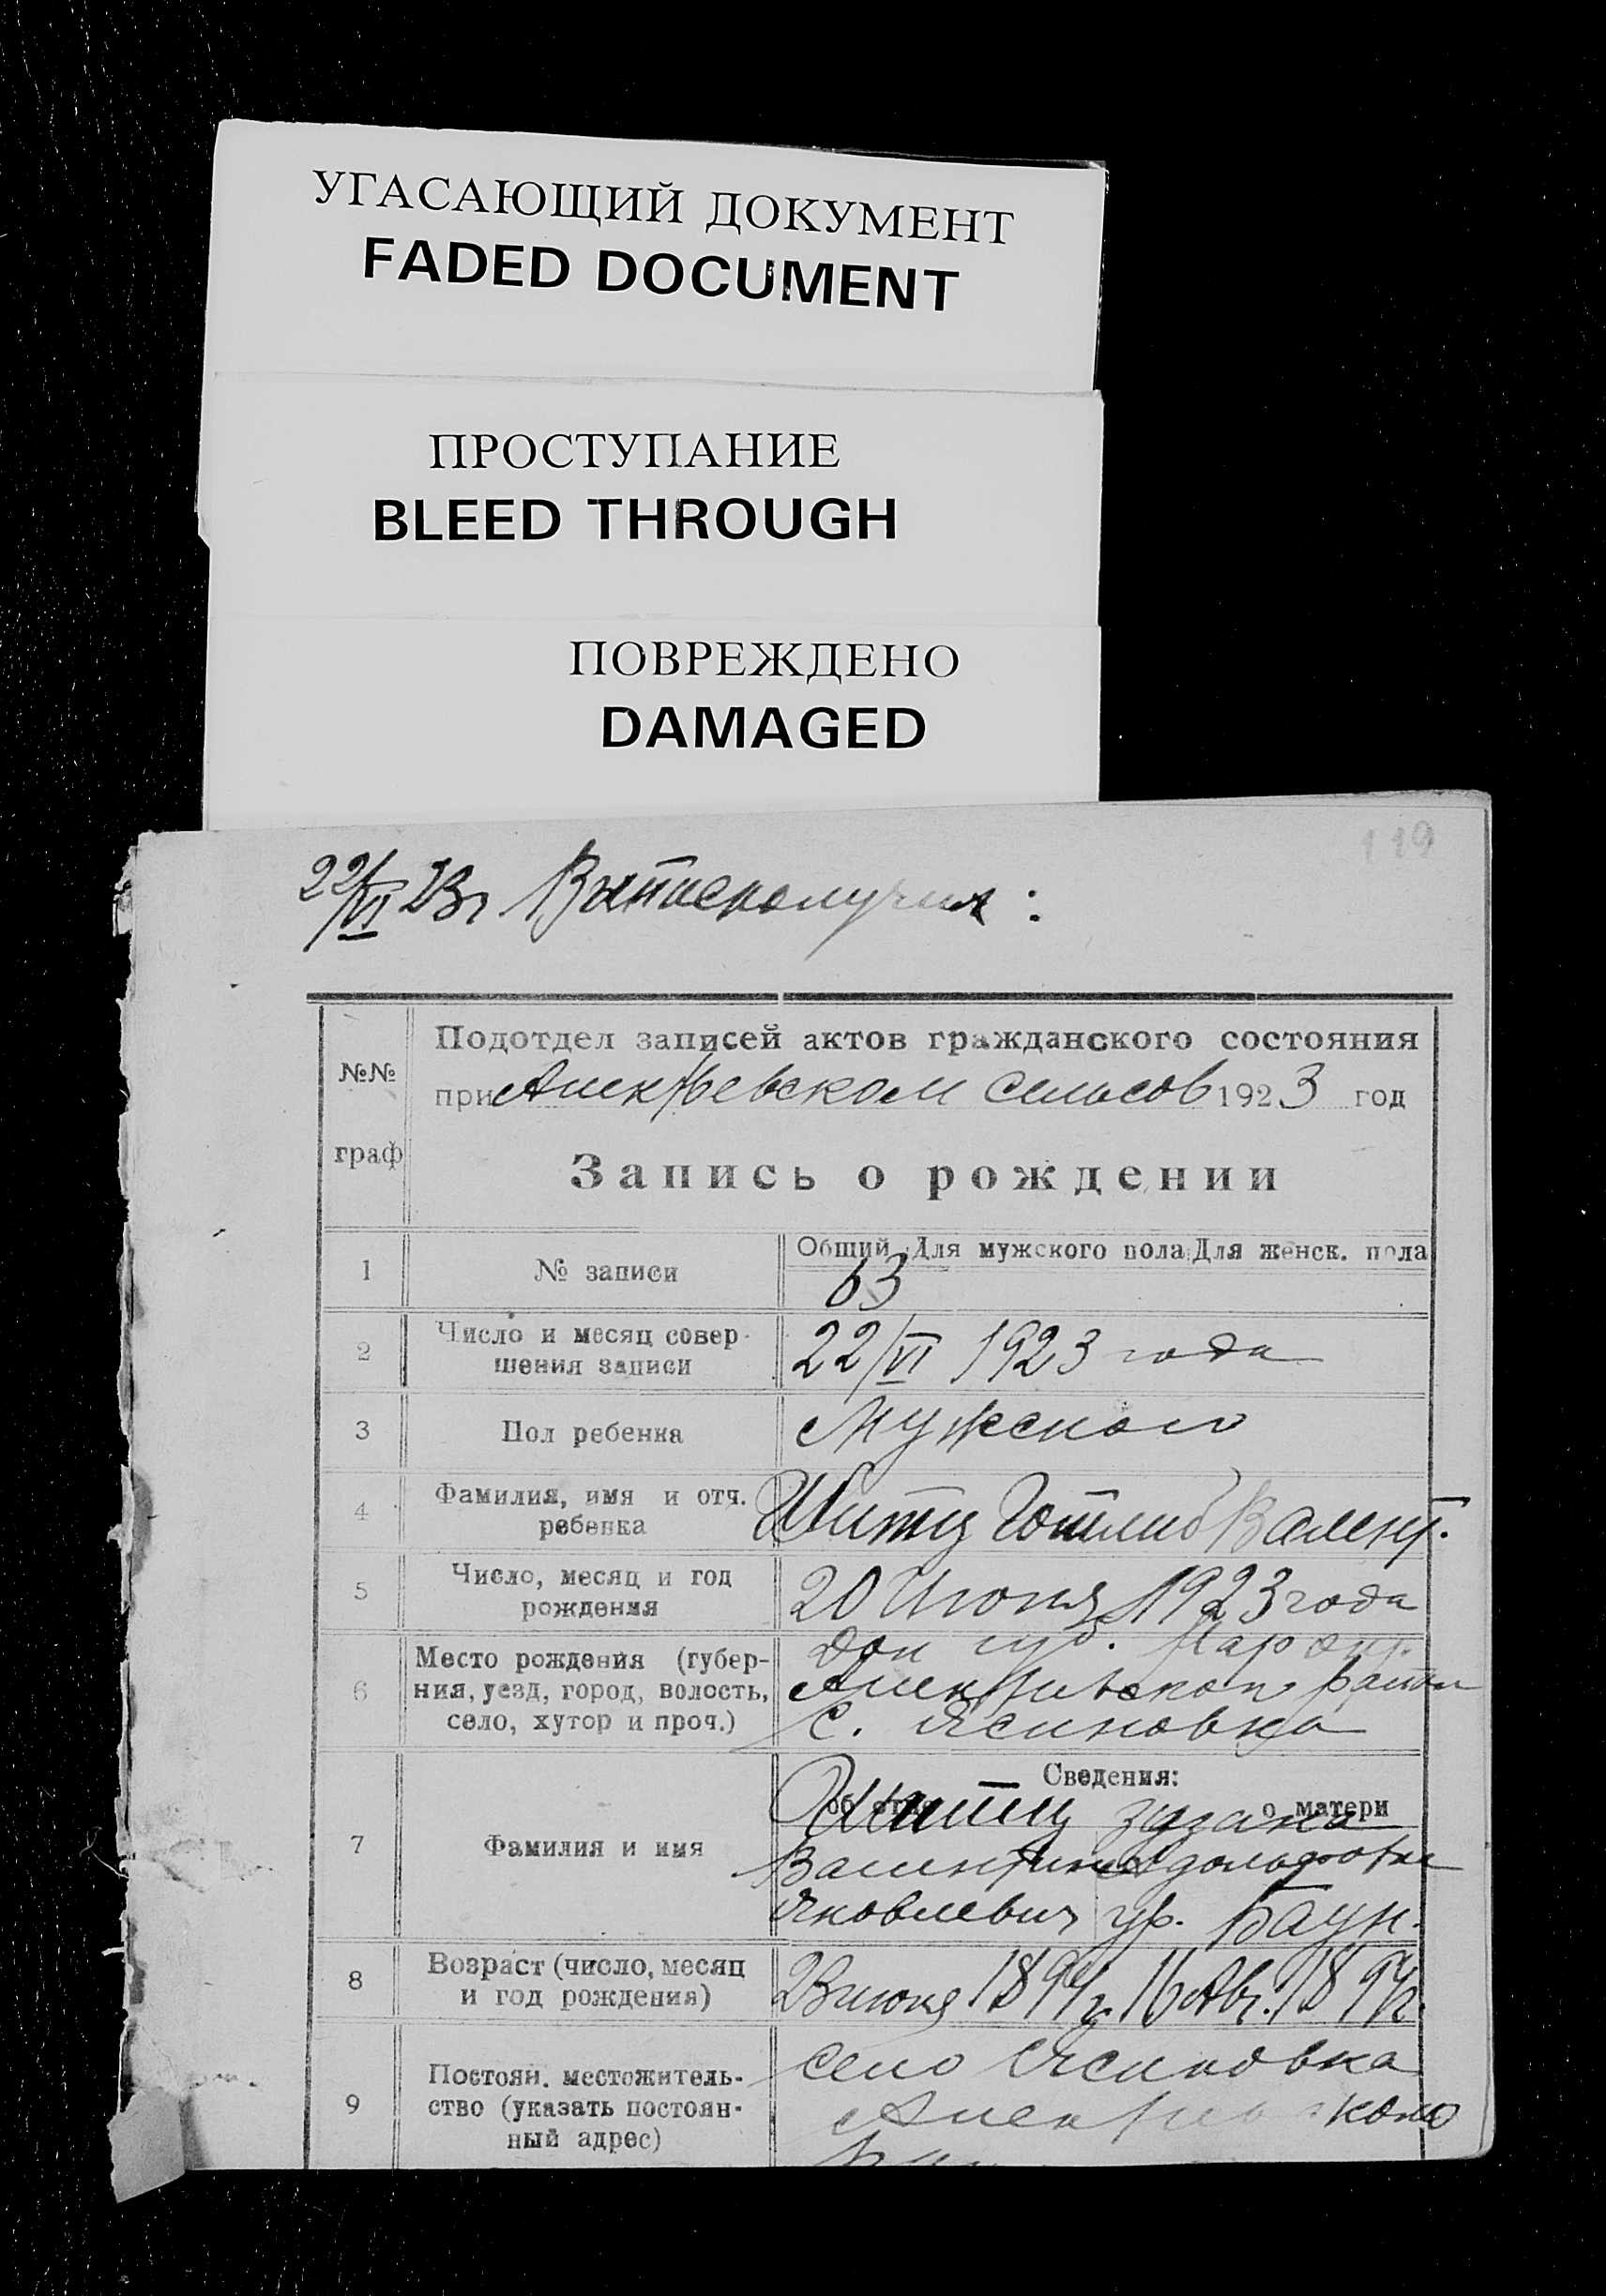 УГАСАЮЩИЙ ДОКУМЕНТ
FADED DOCUMENT
ПРОСТУПАНИЕ
BLEED THROUGH
ПОВРЕЖДЕНО
DAMAGED
119
22/VI 23г
Подотдел записей актов гражданского состояния
№№
при сельсов 1923 год
граф
Запись о рождении
Общий Для мужского пола Для женск. пола
1 № записи 63
2 Число и месяц совер-
шения записи 22/VI 1923 года
3 Пол ребенка Мужского
4 Фамилия, имя и отч.
ребенка Шитц Готлиб Валент.
5 Число, месяц и год
рождения 20 Июня 1923 года
Дон губ. Мар окр.
6 Место рождения (губер-
ния, уезд, город, волость,
село, хутор и проч.)
с. Ясиновка
Сведения:
об отце о матери
Шитц
7 Фамилия и имя
Валентин Адольфовна
Яковлевич ур. Баун.
8 Возраст (число, месяц
и год рождения) 23 июня 1894г. 16 Авг. 1894г.
село Ясиновка
9 Постоян. местожитель-
ство (указать постоян-
ный адрес)